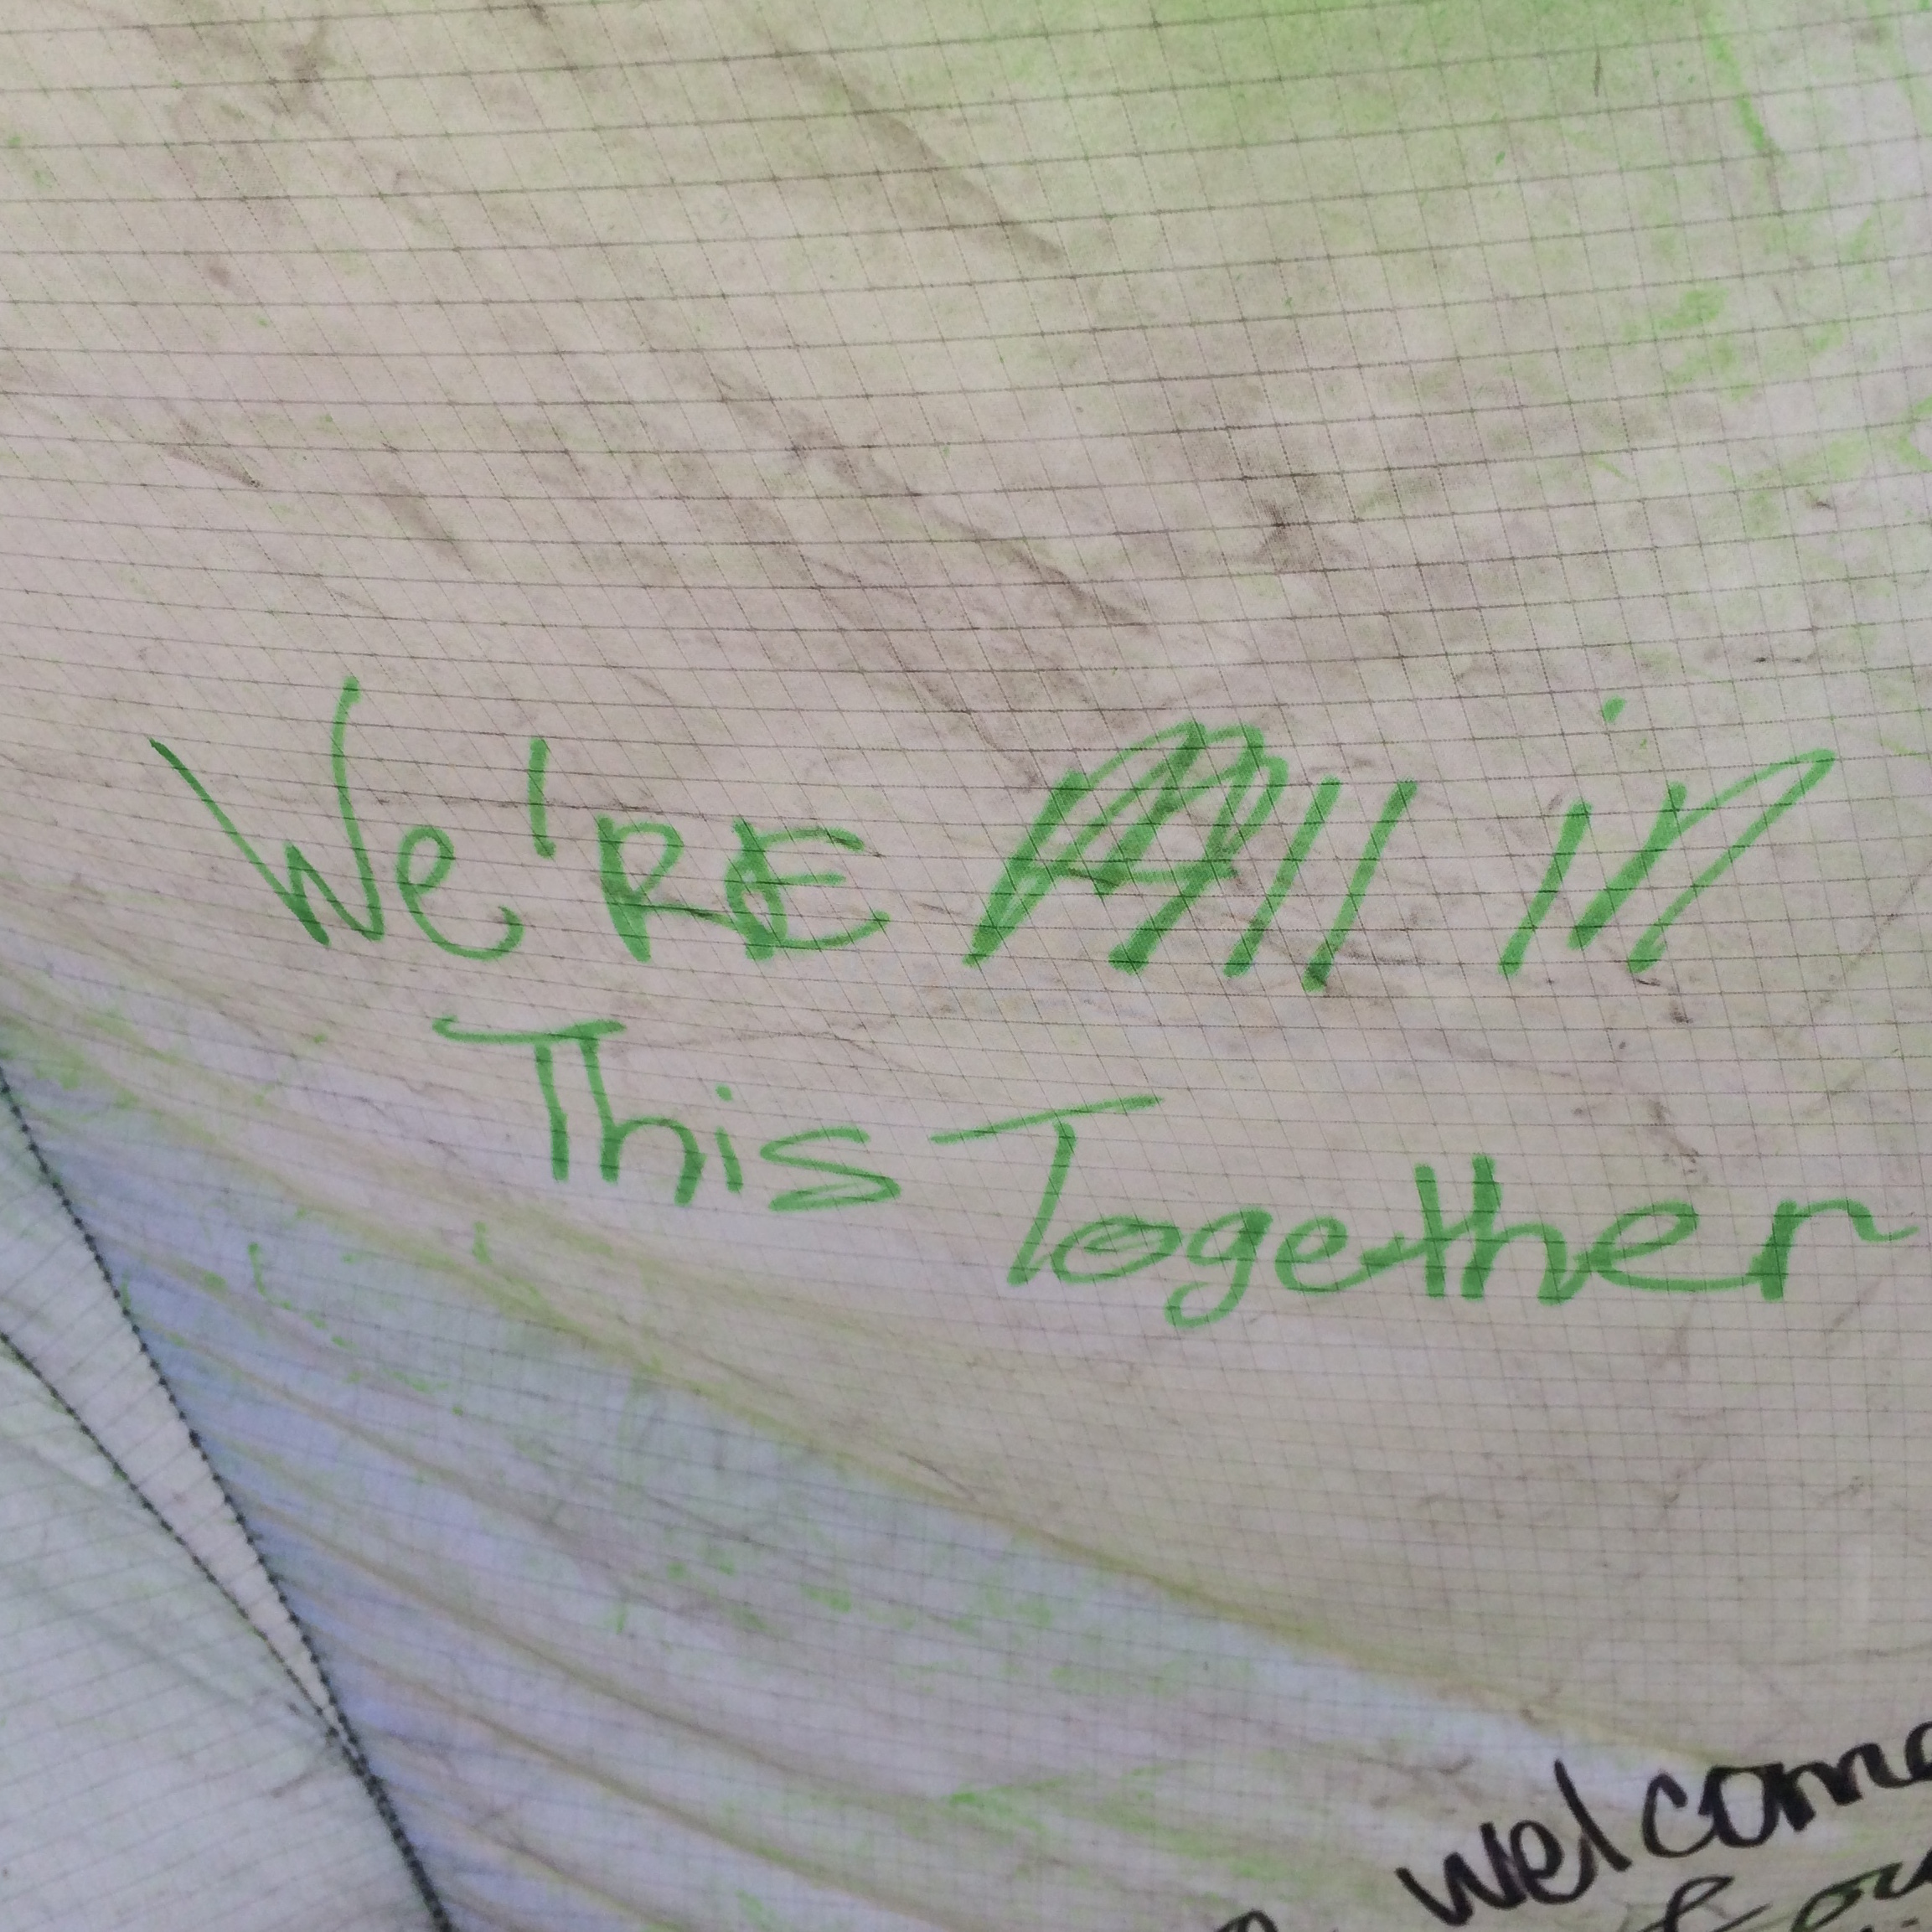 We'RE All in
This Together
welcome